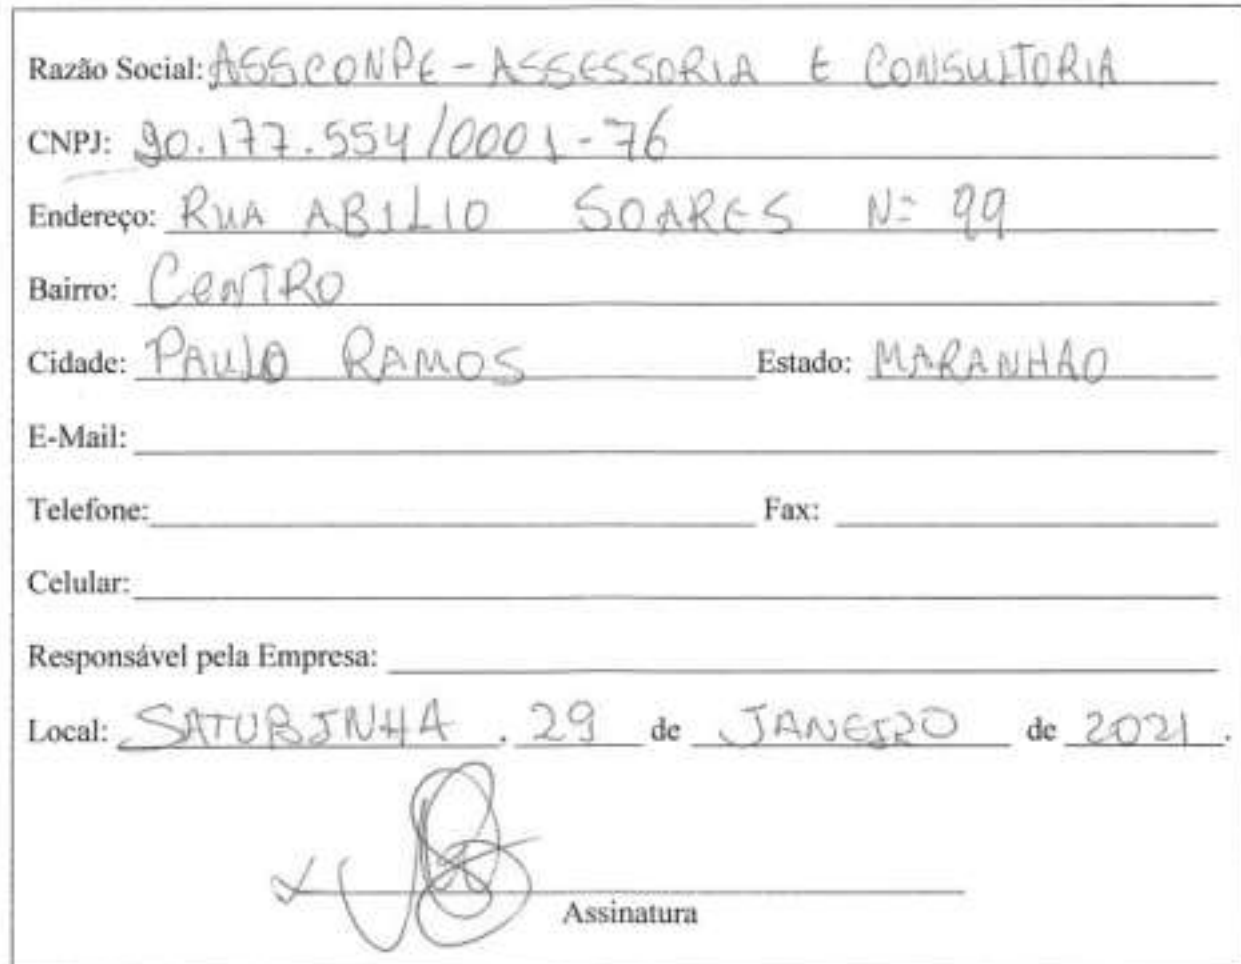 Razão Social: ASSCONPE - ASSESSORIA E CONSULTORIA
CNPJ: 90.177.554/0001-76
Endereço: RUA ABILIO SOARES Nº 99
Bairro: CENTRO
Cidade: PAULO RAMOS Estado: MARANHAO
E-Mail:
Telefone: Fax:
Celular:
Responsável pela Empresa:
Local: SATUBINHA, 29 de JANEIRO de 2021.
Assinatura